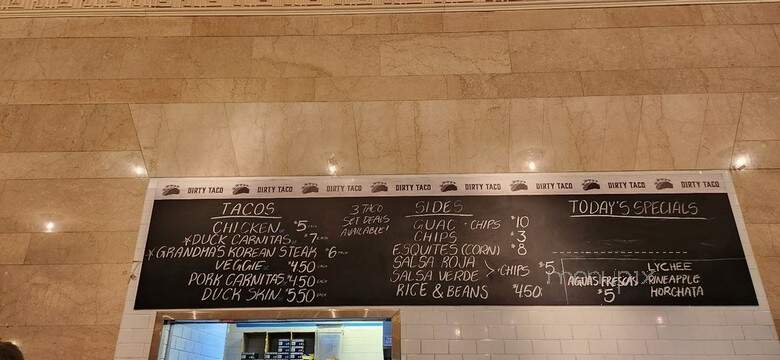 DIRTY TACO DIRTY TACO DIRTY TACO DIRTY TACO DIRTY TACO DIRTY TACO DIRTY TACO DIRTY TACO
TACOS
CHICKEN $5 EACH
*DUCK CARNITAS $7 EACH
*GRANDMA'S KOREAN STEAK $6 EACH
VEGGIE $4.50 EACH
PORK CARNITAS $4.50 EACH
DUCK SKIN $5.50 EACH
3 TACO
SET DEALS
AVAILABLE!
SIDES
GUAC + CHIPS $10
CHIPS $3
ESQUITES (CORN) $8
SALSA ROJA
SALSA VERDE > + CHIPS $5
RICE & BEANS $4.50
TODAY'S SPECIALS
AGUAS FRESCAS
$5
LYCHEE
PINEAPPLE
HORCHATA
menupix